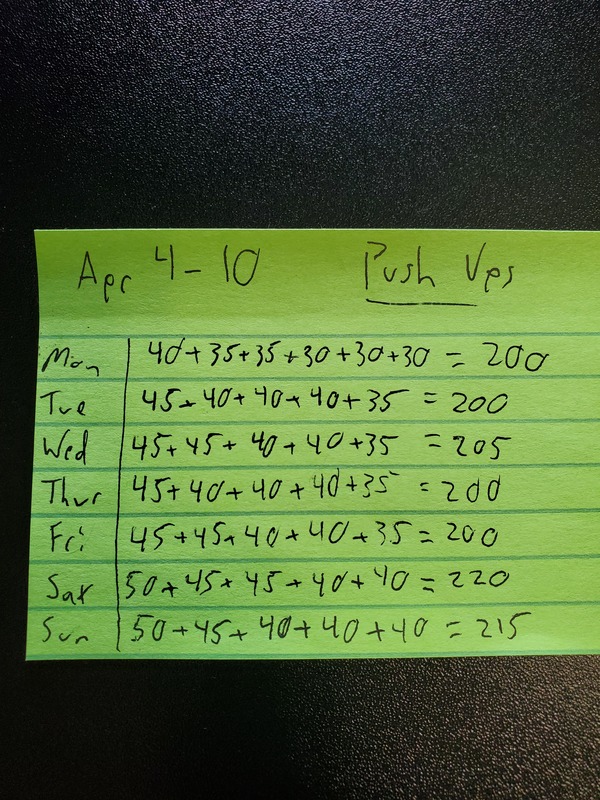 Apr 4-10 Push Ups
Mon 40+35+35+30+30+30 = 200
Tue 45+40+40+40+35 = 200
Wed 45+45+40+40+35 = 205
Thur 45+40+40+40+35 = 200
Fri 45+45+40+40+35 = 200
Sat 50+45+45+40+40 = 220
Sun 50+45+40+40+40 = 215